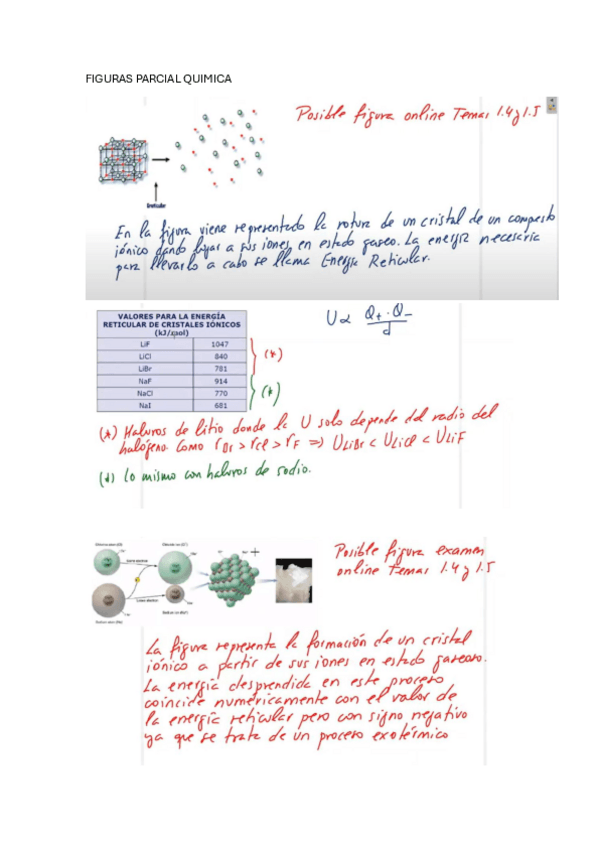 FIGURAS PARCIAL QUIMICA
Posible figura online Temas 1.4 y 1.5
Ereticular
En la figura viene representado la rotura de un cristal de un compuesto
iónico dando lugar a sus iones en estado gaseo. La energía necesaria
para llevarlo a cabo se llama Energía Reticular.
VALORES PARA LA ENERGÍA
RETICULAR DE CRISTALES IÓNICOS
(kJ/mol)
LiF 1047
LiCl 840
LiBr 781
NaF 914
NaCl 770
NaI 681
(*)
(*)
U α Q+ · Q- / d
(*) Haluros de litio donde la U solo depende del radio del
halógeno. Como rBr > rCl > rF => ULiBr < ULiCl < ULiF
(*) Lo mismo con haluros de sodio.
Posible figura examen
online Temas 1.4 y 1.5
La figura representa la formación de un cristal
iónico a partir de sus iones en estado gaseoso.
La energía desprendida en este proceso
coincide numéricamente con el valor de
la energía reticular pero con signo negativo
ya que se trata de un proceso exotérmico